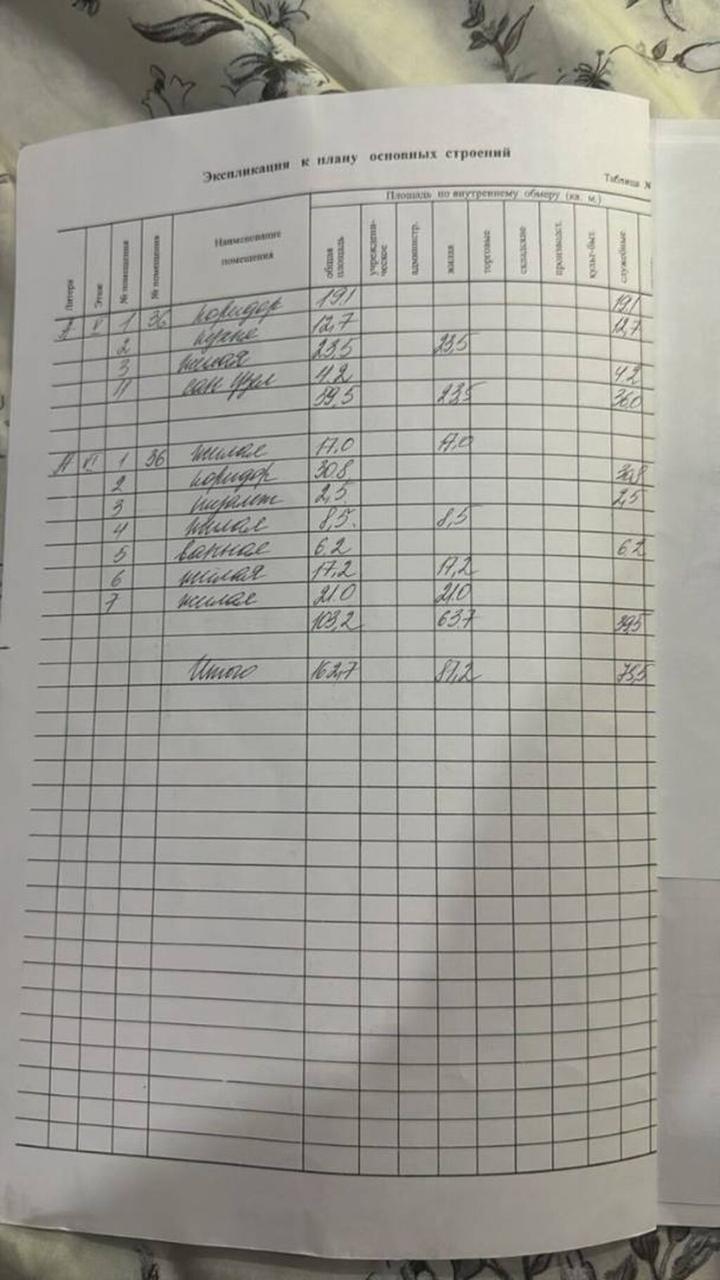 Экспликация к плану основных строений
Таблица N
Площадь по внутреннему обмеру (кв. м.)
Литера Этаж № помещения № помещения Наименование помещения общая площадь учрежденическое администр. жилая торговые складские производст. культ-быт. служебные
V 1 36 коридор 19,1 19,1
2 кухня 12,7 12,7
3 жилая 23,5 23,5
11 сан узел 4.2 4.2
59,5 23,5 36,0
А VI 1 36 жилая 17.0 17.0
2 коридор 30.8 30,8
3 туалет 2,5 2,5
4 жилая 8,5 8,5
5 ванная 6.2 6.2
6 жилая 17,2 17,2
7 жилая 21.0 21.0
103,2 63.7 39,5
Итого 162,7 87,2 75,5